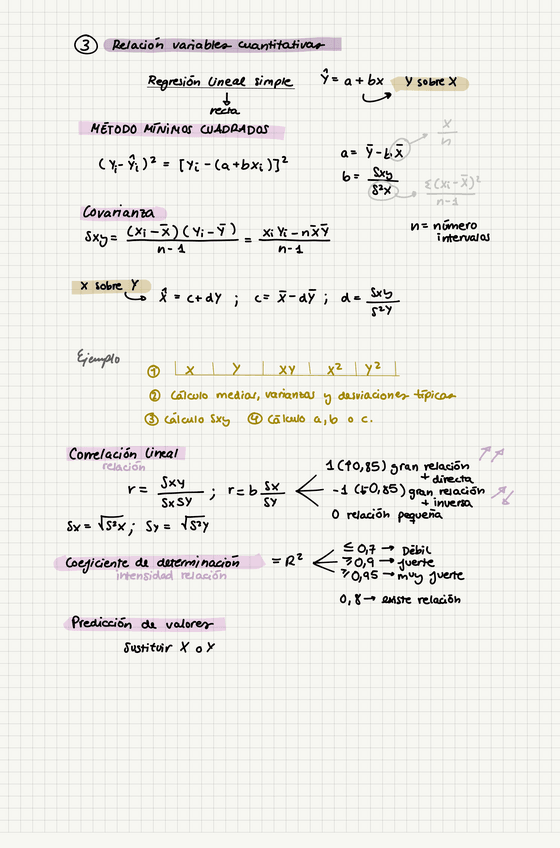 ③ Relación variables cuantitativas
Regresión lineal simple Ŷ = a + bx Y sobre X
↓
recta
MÉTODO MÍNIMOS CUADRADOS
(Yi - Ŷi)² = [Yi - (a + bxi)]²
a = Ȳ - b·X̄ → X/n
b = Sxy/S²x → Σ(Xi - X̄)²/n-1
Covarianza
Sxy = (Xi - X̄)(Yi - Ȳ)/n-1 = XiYi - nX̄Ȳ/n-1
n = número
intervalos
X sobre Y
X̂ = c + dY ; c = X̄ - dȲ ; d = Sxy/S²Y
Ejemplo
① X | Y | XY | X² | Y²
② Cálculo medias, varianzas y desviaciones típicas
③ Cálculo Sxy ④ Cálculo a, b o c.
Correlación lineal
relación
r = Sxy/SxSY ; r = b Sx/SY
1 (↑0,85) gran relación
+ directa
-1 (↓-0,85) gran relación
+ inversa
0 relación pequeña
Sx = √S²x ; Sy = √S²Y
Coeficiente de determinación = R²
intensidad relación
≤ 0,7 → Débil
≥ 0,9 → fuerte
≥ 0,95 → muy fuerte
0,8 → existe relación
Predicción de valores
Sustituir X o Y